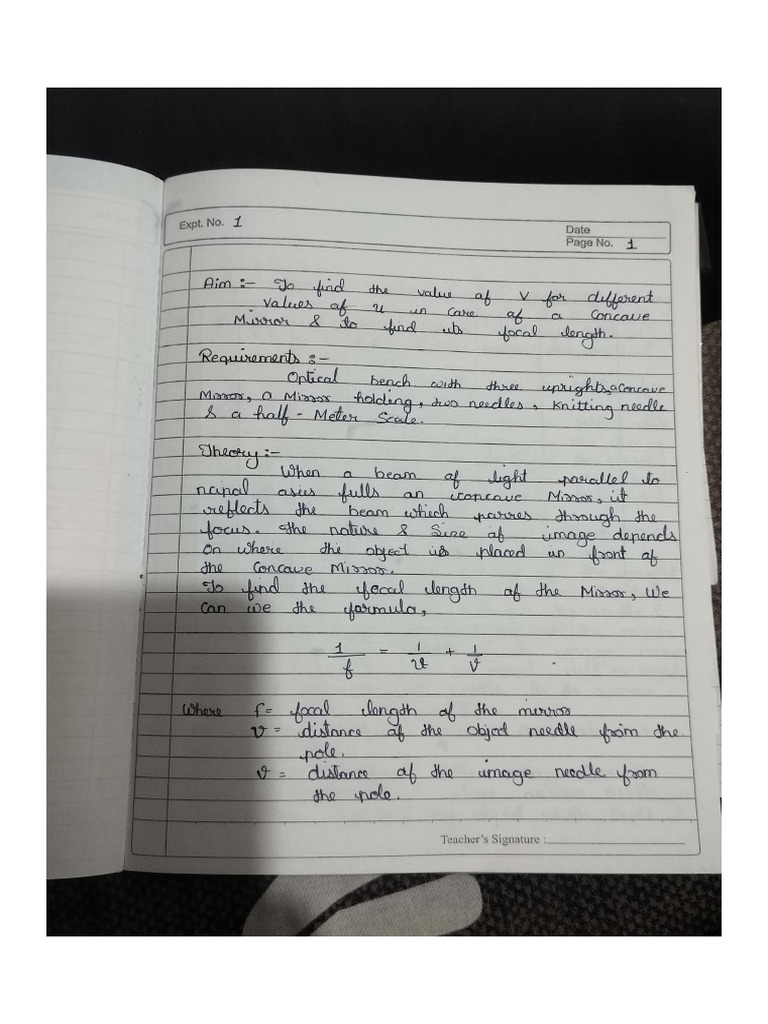 Expt. No. 1
Date
Page No. 1
Aim :- To find the value of v for different
values of u in case of a concave
Mirror & to find its focal length.
Requirements :-
Optical bench with three uprights, a concave
Mirror, a Mirror holding, two needles, Knitting needle
& a half - Meter Scale.
Theory :-
When a beam of light parallel to
ncipal axis falls an concave Mirror, it
reflects the beam which passes through the
focus. The nature & Size of image depends
on where the object is placed in front of
the Concave Mirror.
To find the focal length of the Mirror, We
can we the formula,
1/f = 1/u + 1/v
Where f = focal length of the mirror
v = distance of the object needle from the
pole.
v = distance of the image needle from
the pole.
Teacher's Signature :